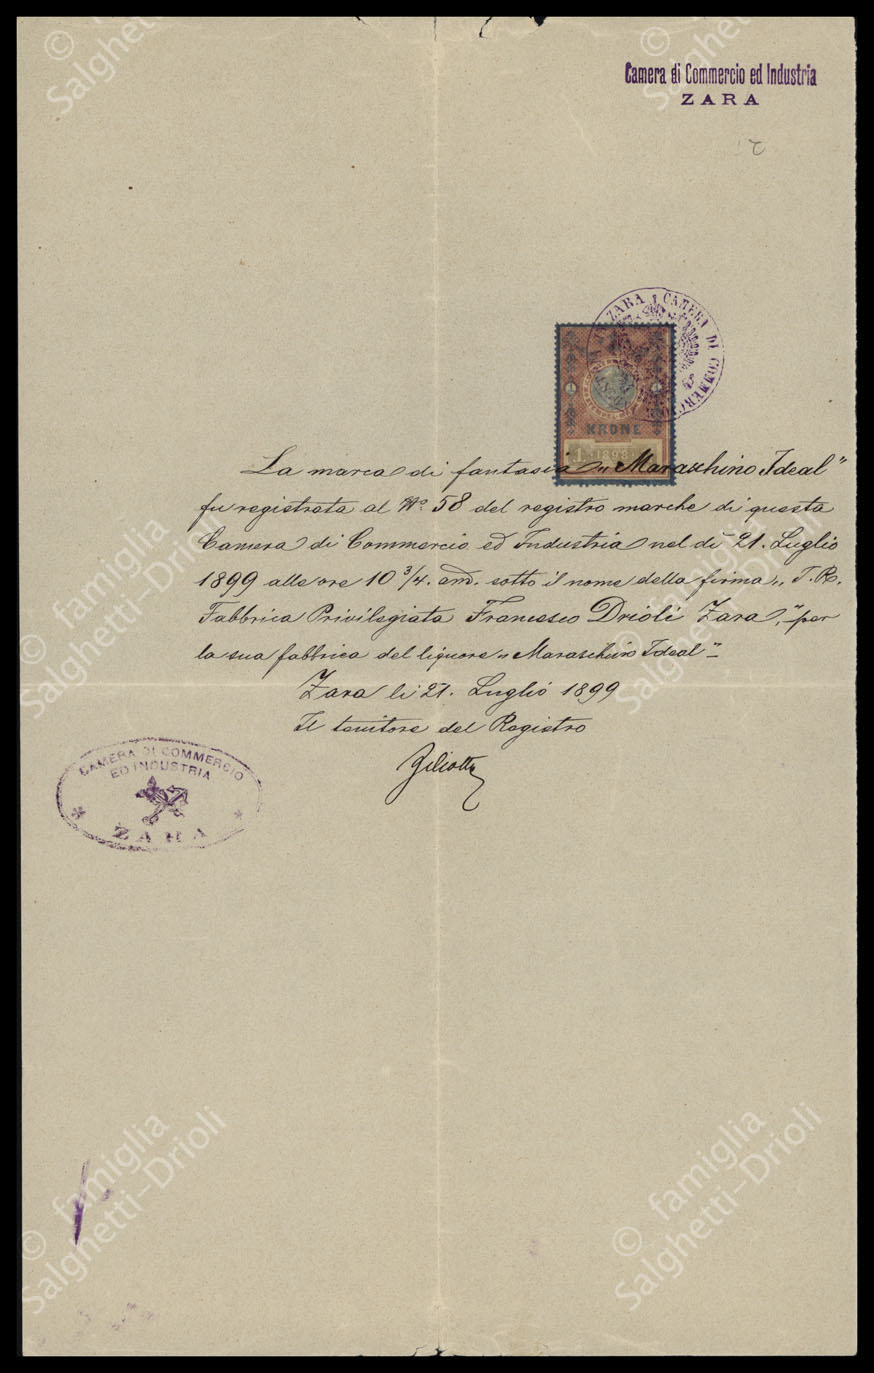 Camera di Commercio ed Industria
ZARA
ZARA
CAMERA DI COMMERC
1
1
KRONE
1 1898
La marca di fantasia „Maraschino Ideal"
fu registrata al No. 58 del registro marche di questa
Camera di Commercio ed Industria nel dì 21. Luglio
1899 alle ore 10 3/4. am. sotto il nome della firma „I. R.
Fabbrica Privilegiata Francesco Drioli Zara," per
la sua fabbrica del liquore „Maraschino Ideal"
Zara li 21. Luglio 1899
Il tenitore del Registro
CAMERA DI COMMERCIO
ED INDUSTRIA
ZARA
© famiglia
Salghetti-Drioli
© famiglia
Salghetti-Drioli
© famiglia
Salghetti-Drioli
© famiglia
Salghetti-Drioli